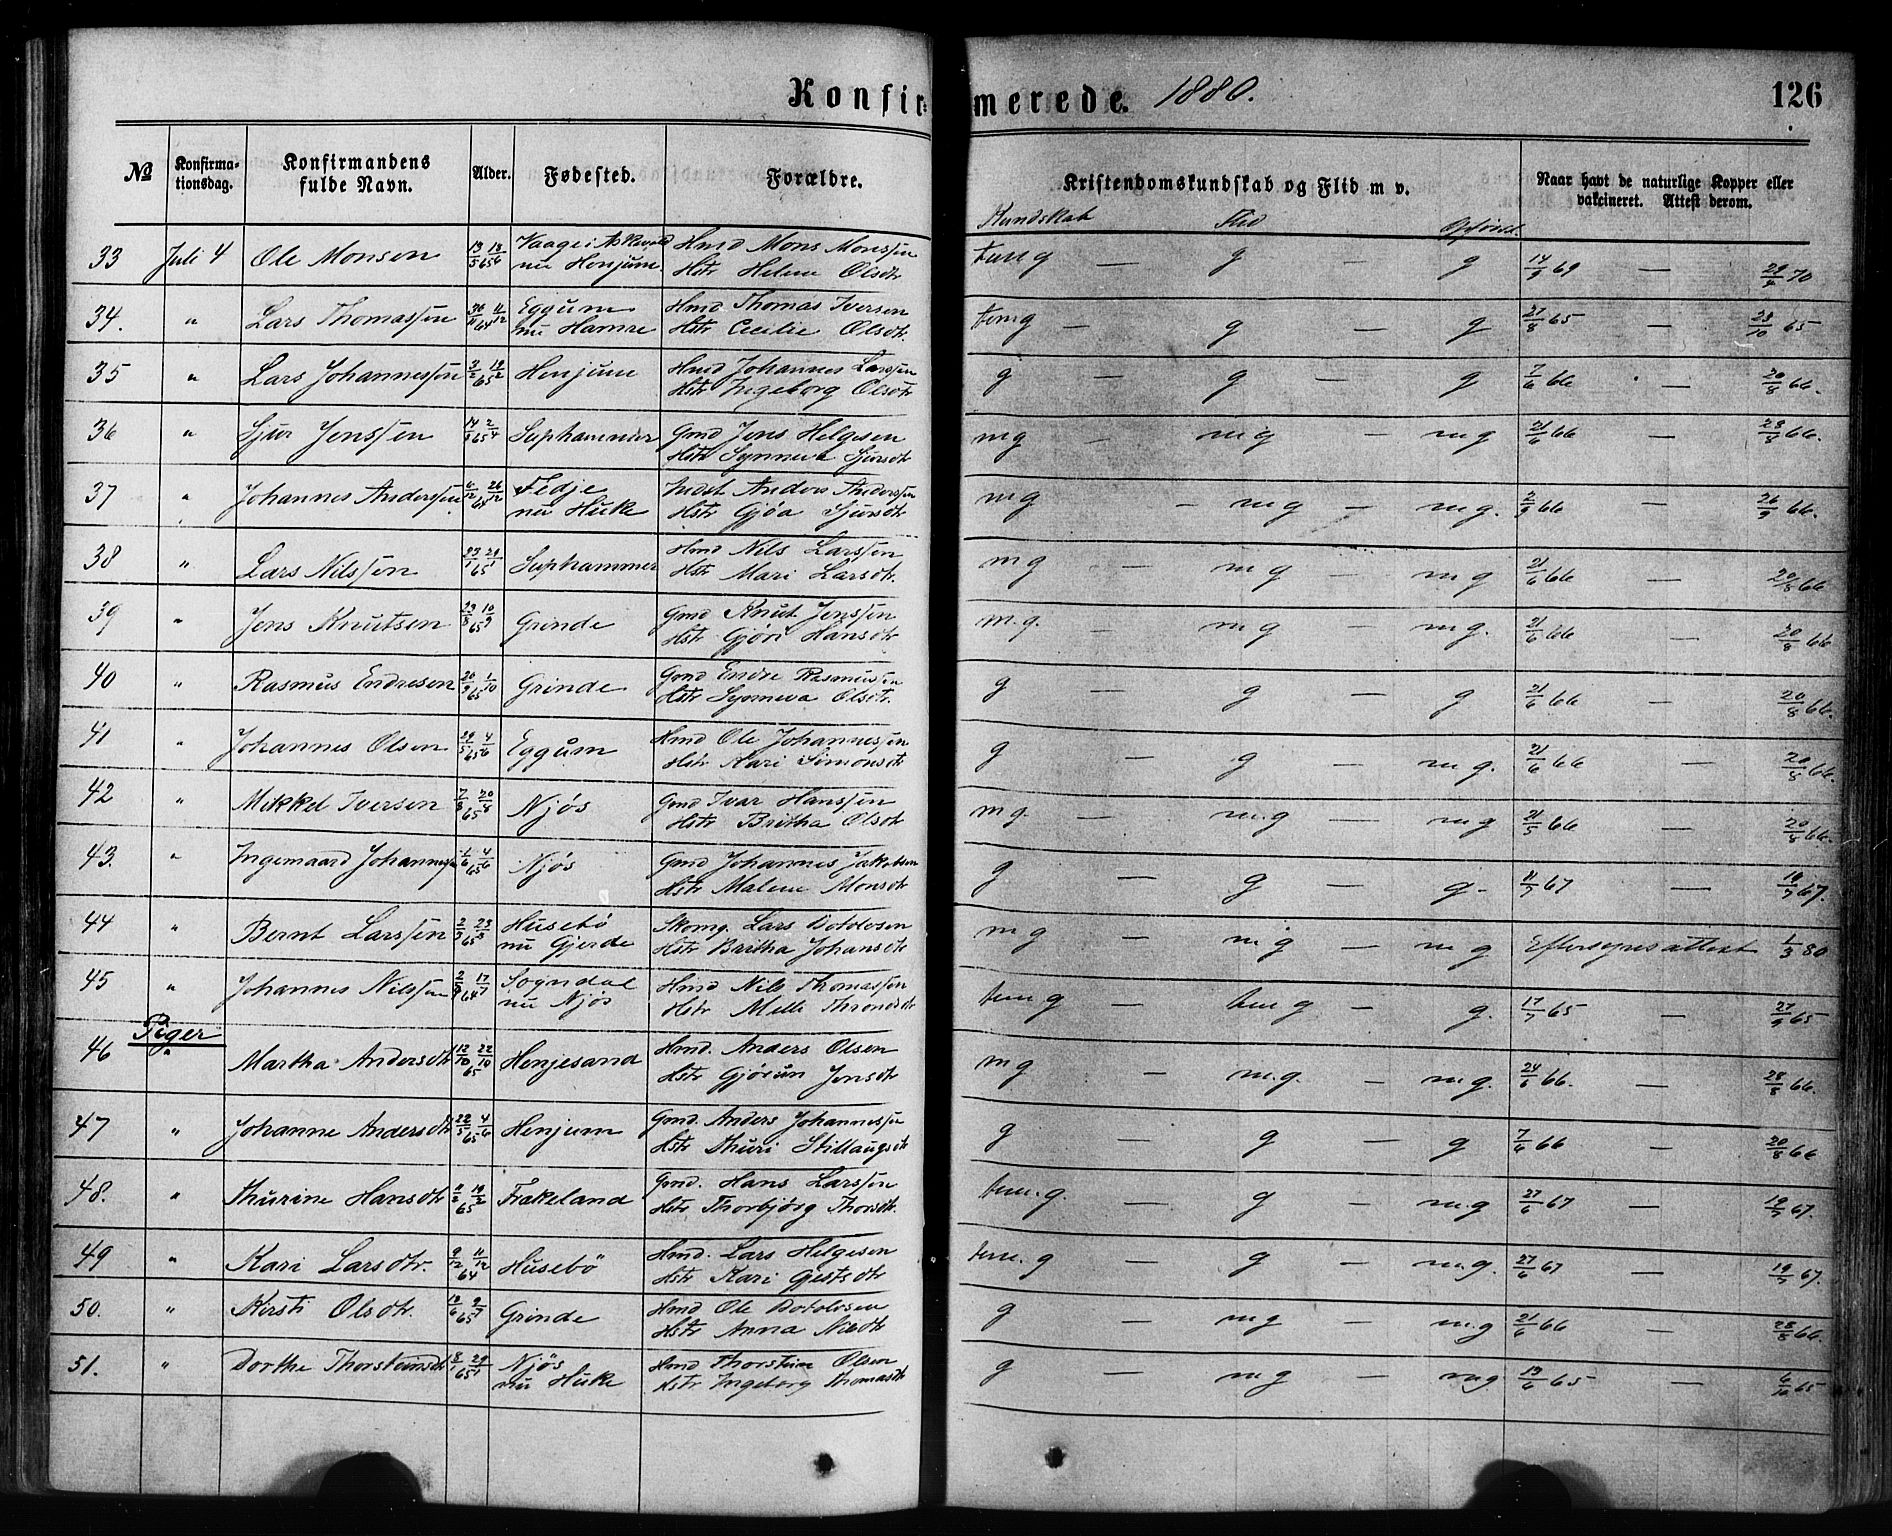 Konfirmerede. 1880. 126
№ Konfirmationsdag. Konfirmandens fulde Navn. Alder. Fødested. Forældre. Kristendomskundskab og Flid m v. Naar havt de naturlige Kopper eller vakcineret. Attest derom.
Kundskab Flid Opførsel.
33 Juli 4 Ole Monsen Vaage i Askevold nu Henjum. Hmd Mons Monssen Hstr Helene Olsdtr tem g — g — g 14/9 69 — 29/4 70
34. " Lars Thomassen 30/11 64 11/12 Eggum nu Hamre Hmd Thomas Iversen Hstr Cecilie Olsdtr. tem g — g g 27/8 65 — 23/10 65
35 " Lars Johannessen 3/2 65 19/2 Henjum Hmd Johannes Larssen Hstr Ingeborg Olsdtr g — g — g 7/6 66 — 20/8 66.
36 " Sjur Jenssen 14/3 65 2/4 Suphammer Gmd Jens Helgesen Hstr Synneva Sjursdtr mg — mg — mg 21/6 66 — 66.
37 " Johannes Anderssen 6/12 64 26/12 Fedje nu Huke Indst Anders Anderssen Hstr Gjøa Sjursdtr mg — mg — mg. 66 26/9 66.
38 " Lars Nilssen 65 Suphammer Hmd Nils Larssen Hstr Mari Larsdtr. mg — mg — mg 21/6 66 — 20/8 66
39 " Jens Knutsen 29/8 65 10/9 Grinde Gmd Knut Jenssen Hstr Gjøri Hansdtr m.g. — mg — mg. 21/6 66 — 20/8 66
40 " Rasmus Endresen 20/9 65 1/10 Grinde Gmd Endre Rasmussen Hstr Synneva Olsdtr. g — g — g 21/6 66 — 20/8 66.
41 " Johannes Olsen 29/5 65 4/6 Eggum Hmd Ole Johannessen Hstr Kari Simonsdtr g — g — mg. 21/6 66 — 20/8 66.
42 " Mikkel Iversen 7/8 65 20/8 Njøs Gmd Ivar Hanssen Hstr Britha Olsdtr mg. — m.g — mg 21/5 66 — 20/8 66.
43. " Ingemaard Johannessen 1/6 65 4/6 Njøs Gmd Johannes Jakobsen Hstr Malene Monsdtr g — g — g- 11/7 67 — 19/7 67.
44 " Bernt Larssen 65 Husebø nu Gjerde Skomg. Lars Hstr Britha Johansdtr mg — mg — mg Eftersynsattest 1/3 80
45 " Johannes Nilssen 64 17/7 Sogndal nu Njøs Hmd Nils Thomassen Hstr Melli Throndsdtr tem g — tem g — g. 17/7 65 — 27/9 65
Piger
46 " Martha Andersdtr 12/10 65 22/10 Henjesand Hmd. Anders Olsen Hstr Gjørun Jensdtr mg — m.g. — mg. 24/6 66. — 28/8 66.
47 " Johanne Andersdtr 22/5 65 4/6 Henjum Gmd. Anders Johannessen Hstr Thuri Stillaugsdtr g — g — g 7/6 66 — 20/8 66
48. " Thurine Hansdtr 11/2 65 19/2 Frækeland Gmd. Hans Larssen Hstr Thorbjørg Thorsdtr. tem.g. — g — m.g 27/6 67 — 19/7 67.
49 " Kari Larsdtr. 9/12 64 11/12 Husebö Hmd. Lars Helgesen Hstr Kari Gjestsdtr tem.g — g — m.g. 27/6 67 — 19/7 67.
50. " Kirsti Olsdtr. 65 9/7 Grinde Hmd Ole Hstr Anna Nilsdtr g — mg — m.g 21/6 66 — 28/8 66.
51. " Dorthe Thorsteinsdtr 18/1 65 29/1 Njøs nu Huke Hmd Thorstein Olsen Hstr Ingeborg Thomasdtr g — mg — mg 19/6 65 — 6/10 65